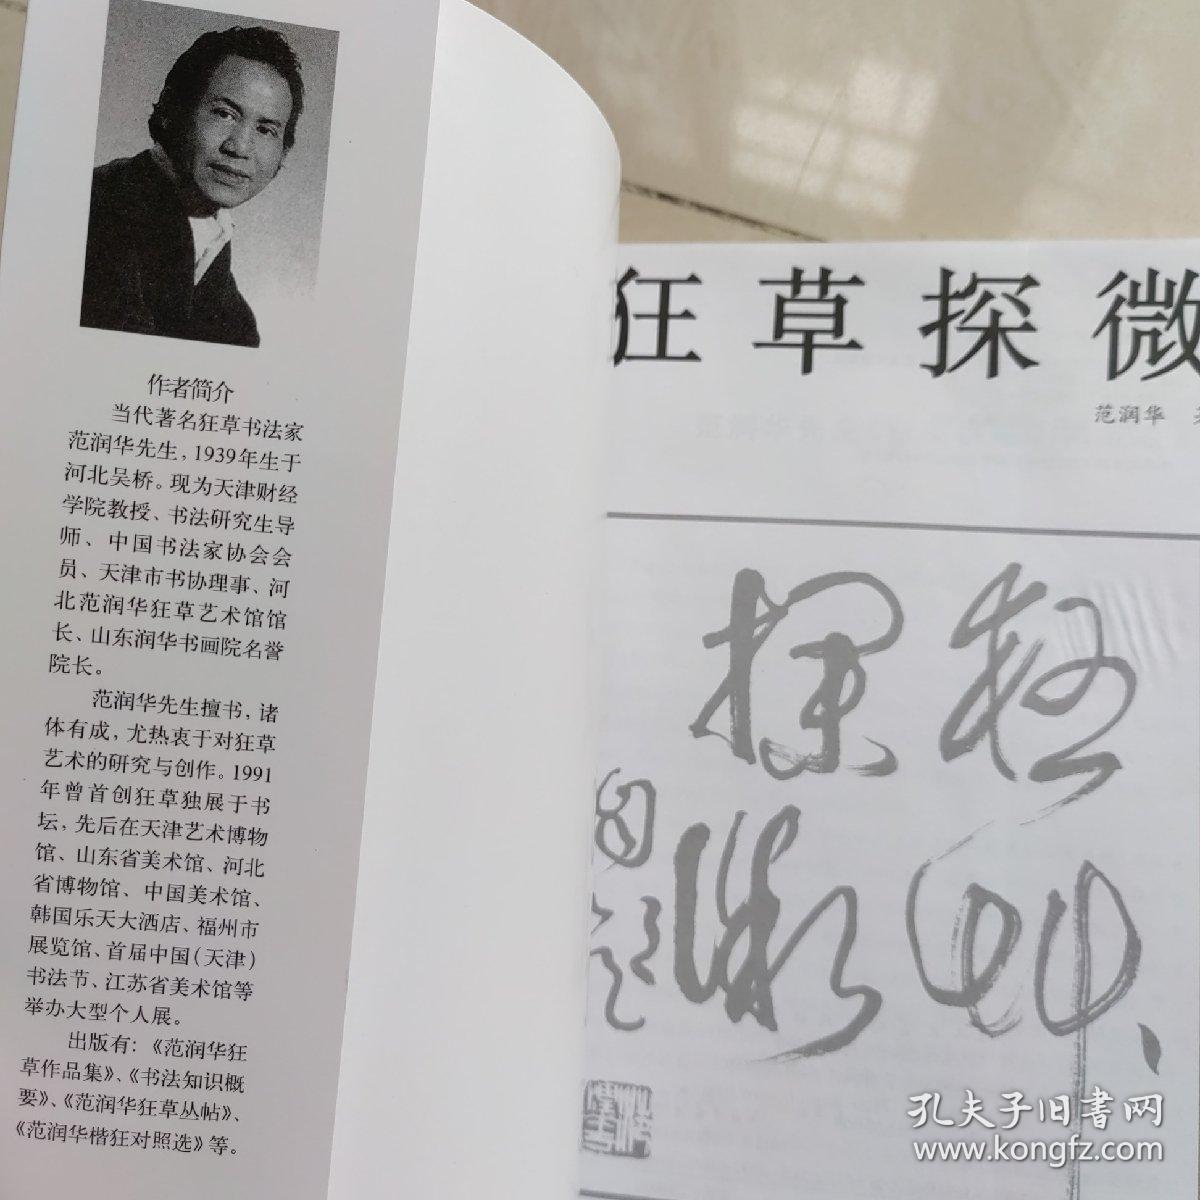 作者简介
当代著名狂草书法家
范润华先生，1939年生于
河北吴桥。现为天津财经
学院教授、书法研究生导
师、中国书法家协会会
员、天津市书协理事、河
北范润华狂草艺术馆馆
长、山东润华书画院名誉
院长。
范润华先生擅书，诸
体有成，尤热衷于对狂草
艺术的研究与创作。1991
年曾首创狂草独展于书
坛，先后在天津艺术博物
馆、山东省美术馆、河北
省博物馆、中国美术馆、
韩国乐天大洒店、福州市
展览馆、首届中国（天津）
书法节、江苏省美术馆等
举办大型个人展。
出版有：《范润华狂
草作品集》、《书法知识概
要》、《范润华狂草丛帖》、
《范润华楷狂对照选》等。
狂草探微
范润华
狂草
探微
孔夫子旧書网
www.kongfz.com